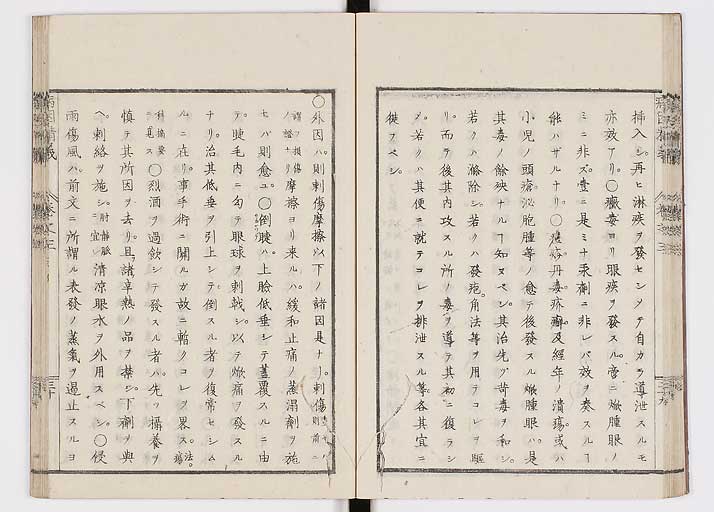 挿入シ。再ヒ淋疾ヲ發センメテ自カラ導泄スルモ
亦效アリ。〇黴毒ヨリ眼疾ヲ發スル。啻ニ焮腫眼ノ
ミニ非ズ。壹ニ是ミナ汞劑ニ非レバ效ヲ奏スルヿ
能ハザルナリ。〇痘疹丹毒疥癬及經年ノ潰瘍。或ハ
小児ノ頭瘡泌胞腫等ノ愈テ後發スル焮腫眼ハ。是
其毒ノ餘殃ナルヿ知ヌベシ。其治先ヅ苛毒ヲ和シ。
若クハ滌除シ。若クハ發疱。角法等ヲ用テコレヲ驅
リ。而テ後其内攻スル所ノ毒ヲ導テ其初ニ復ラシ
メ。若クハ其便ニ就テコレヲ排泄スル等各其宜ニ
從フベシ。
〇外因ハ。則刺傷摩擦以下ノ諸因是ナリ。刺傷
則前ニ
謂フ損傷
ノ證ナリ
摩擦ヨリ来ルハ。緩和止痛ノ蒸溻劑ヲ施
セバ則愈ユ。〇倒睫ハ。上瞼低垂シテ蓋覆スルニ由
テ睫毛内ニ勾テ眼球ヲ刺戟シ。以テ焮痛ヲ發スル
ナリ。治其低垂ヲ引上シテ。倒スル者ヲ復常セシム
ルニ在リ。事手術ニ關ルガ故ニ暫クコレヲ畧ス。
〇烈酒ヲ過飲シテ發スル者ハ。先ヅ攝養ヲ
慎テ其所因ヲ去リ。且諸辛熱ノ品ヲ禁シ。下劑ヲ與
ヘ。刺絡ヲ施シ。
肘靜脈
ニ宜シ
清凉眼水ヲ外用スベシ。〇侵
雨傷風ハ。前文ニ所謂ル表發ノ蒸氣ヲ遏止スルヨ